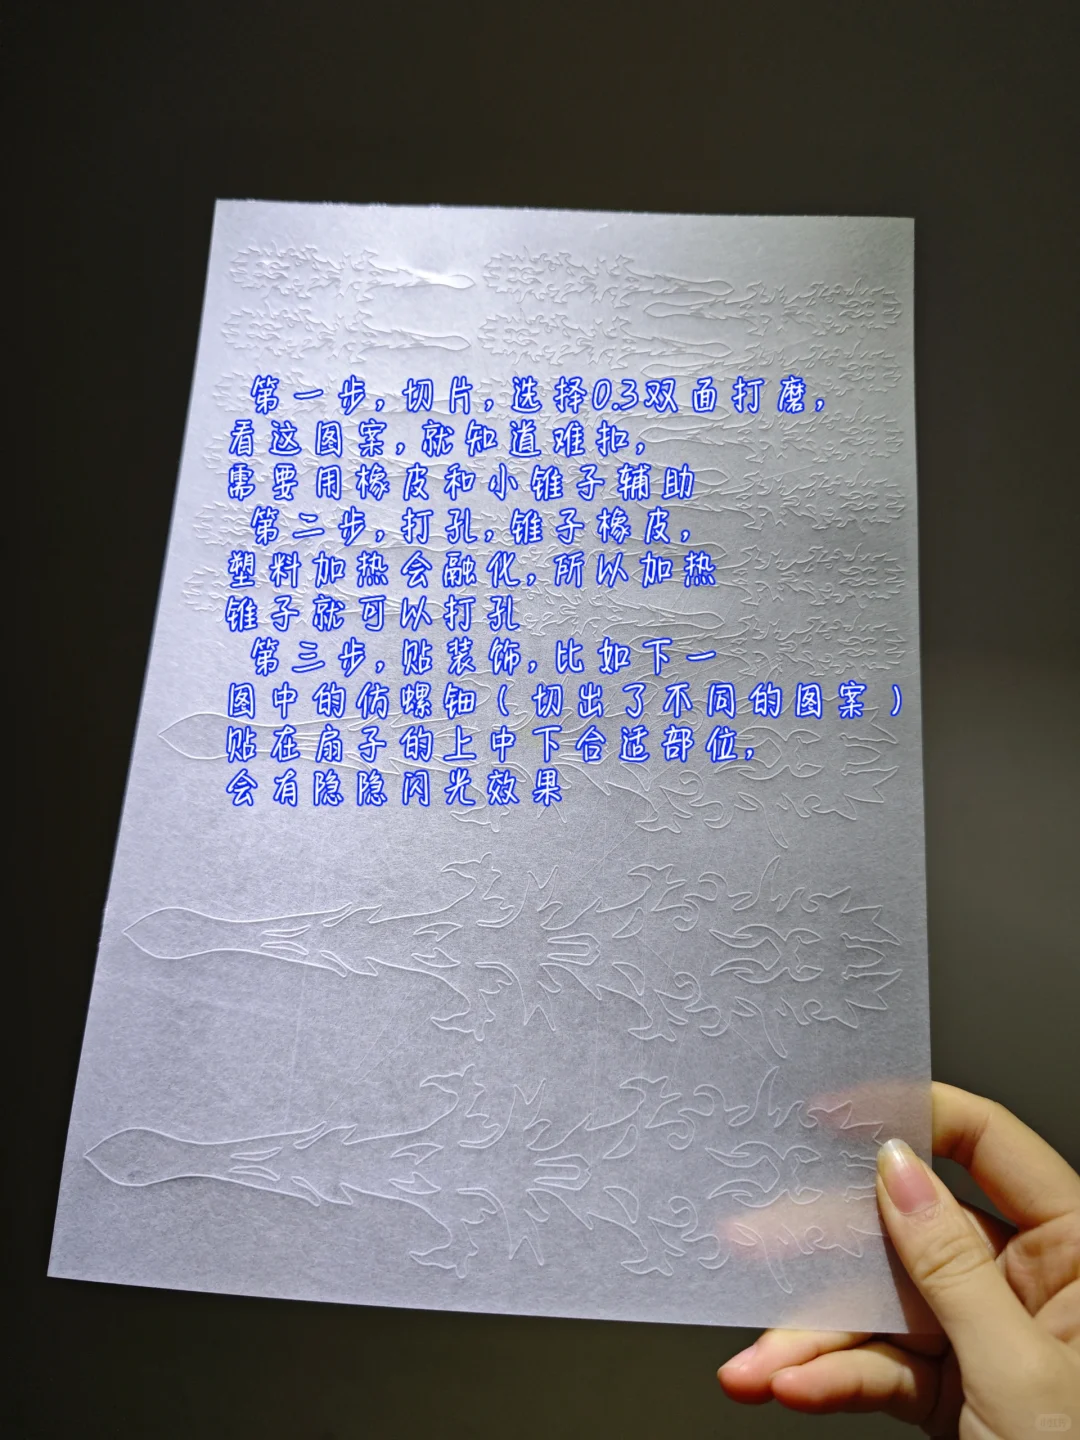 第一步,切片,选择0.3双面打磨,
看这图案,就知道难扣,
需要用橡皮和小锥子辅助
第二步,打孔,锥子橡皮,
塑料加热会融化,所以加热
锥子就可以打孔
第三步,贴装饰,比如下一
图中的仿螺钿(切出了不同的图案)
贴在扇子的上中下合适部位,
会有隐隐闪光效果